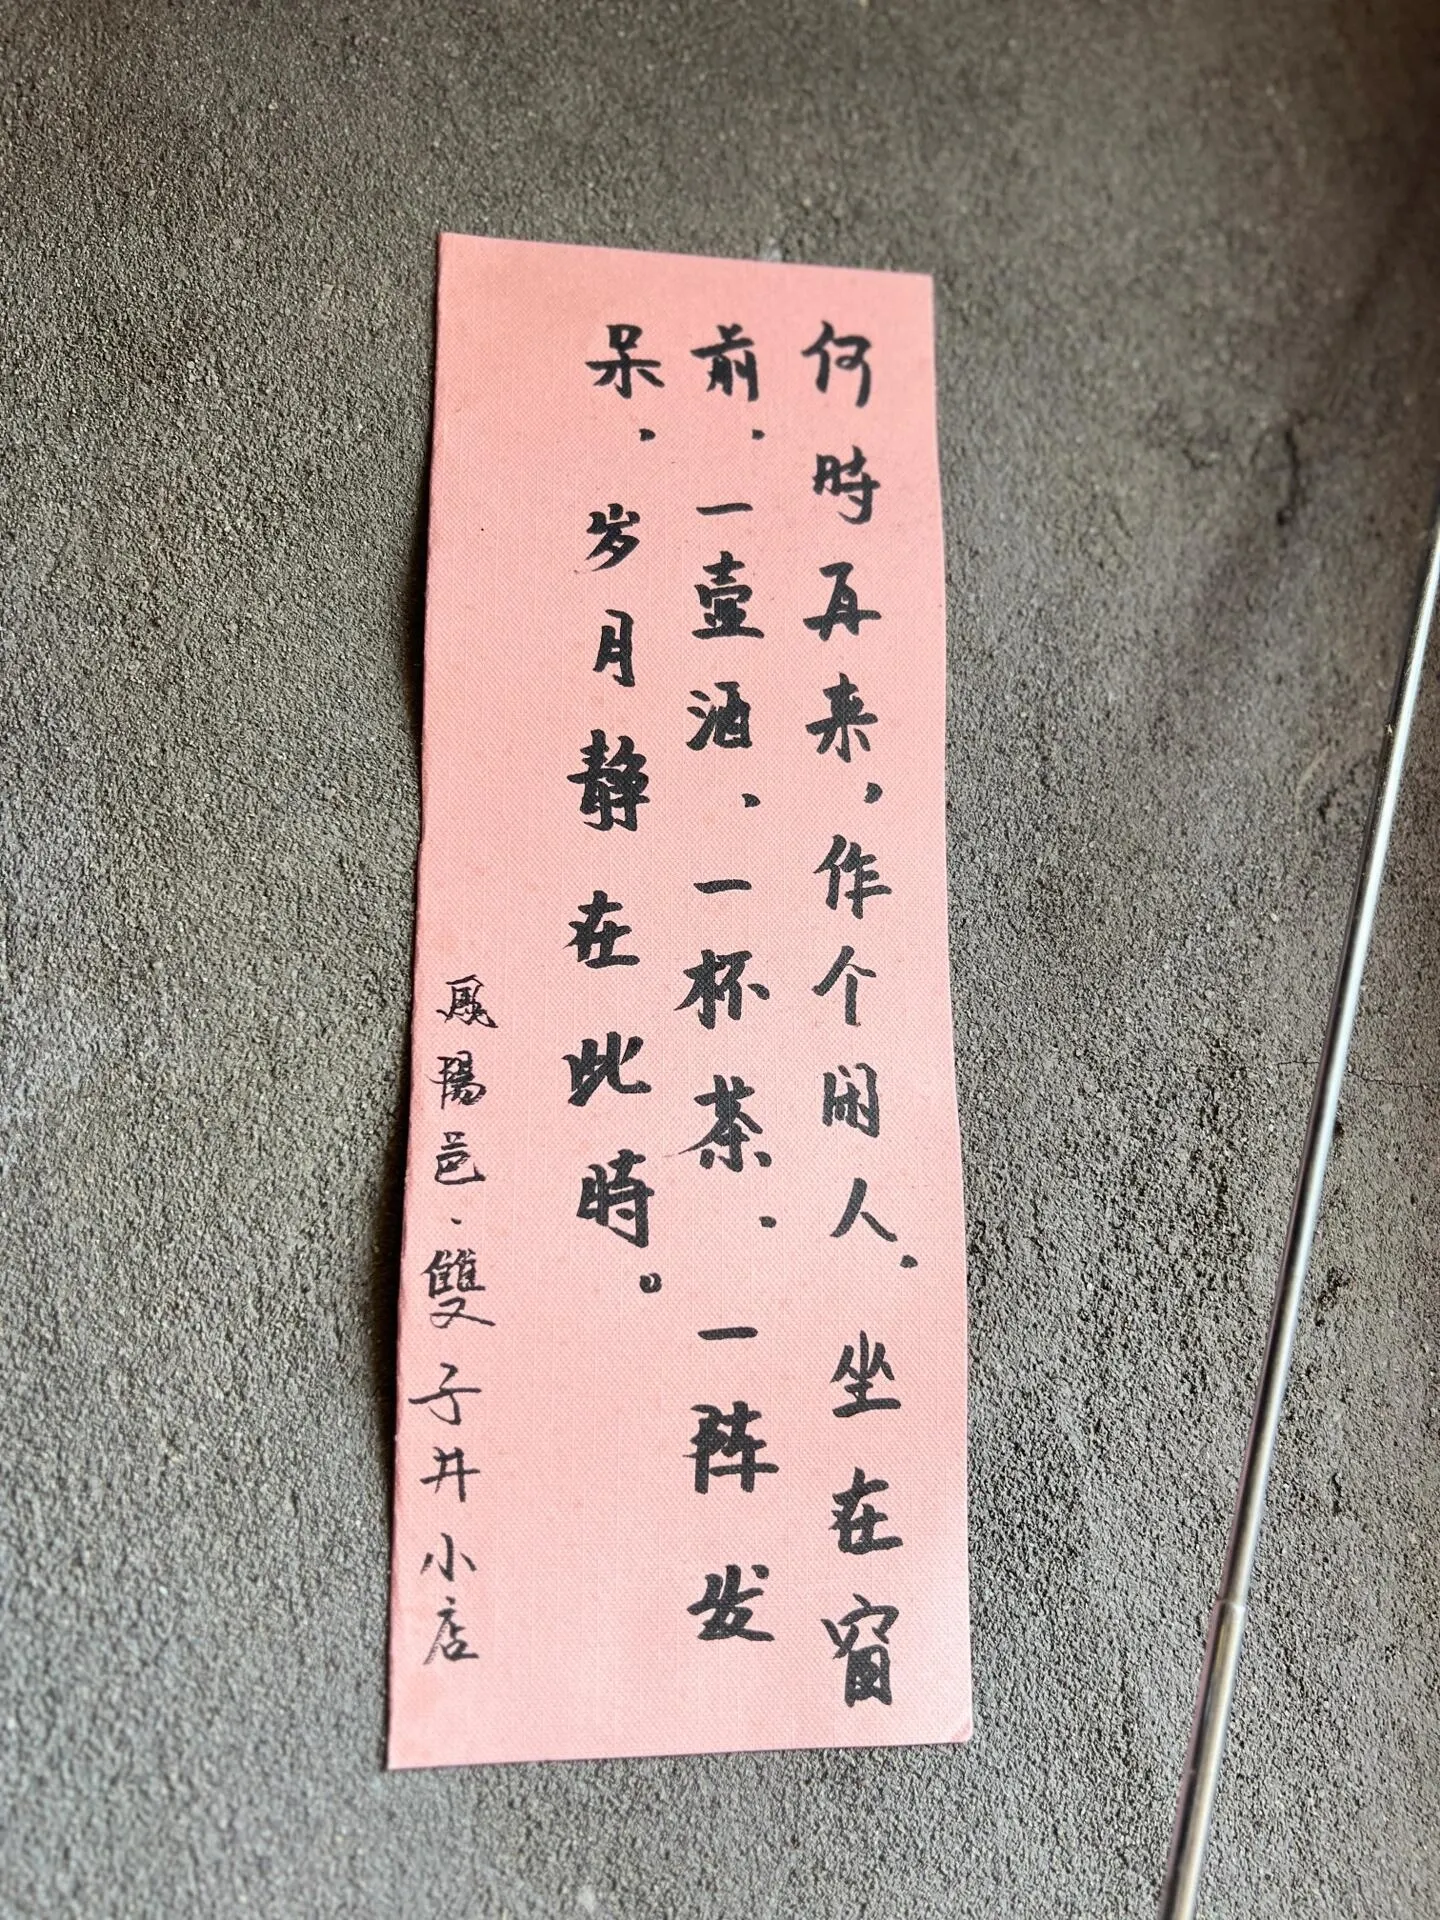 何時再来，作个闲人.坐在窗
前.一壶酒、一杯茶、一阵发
呆.岁月静在此時。
鳳陽邑.雙子井小店